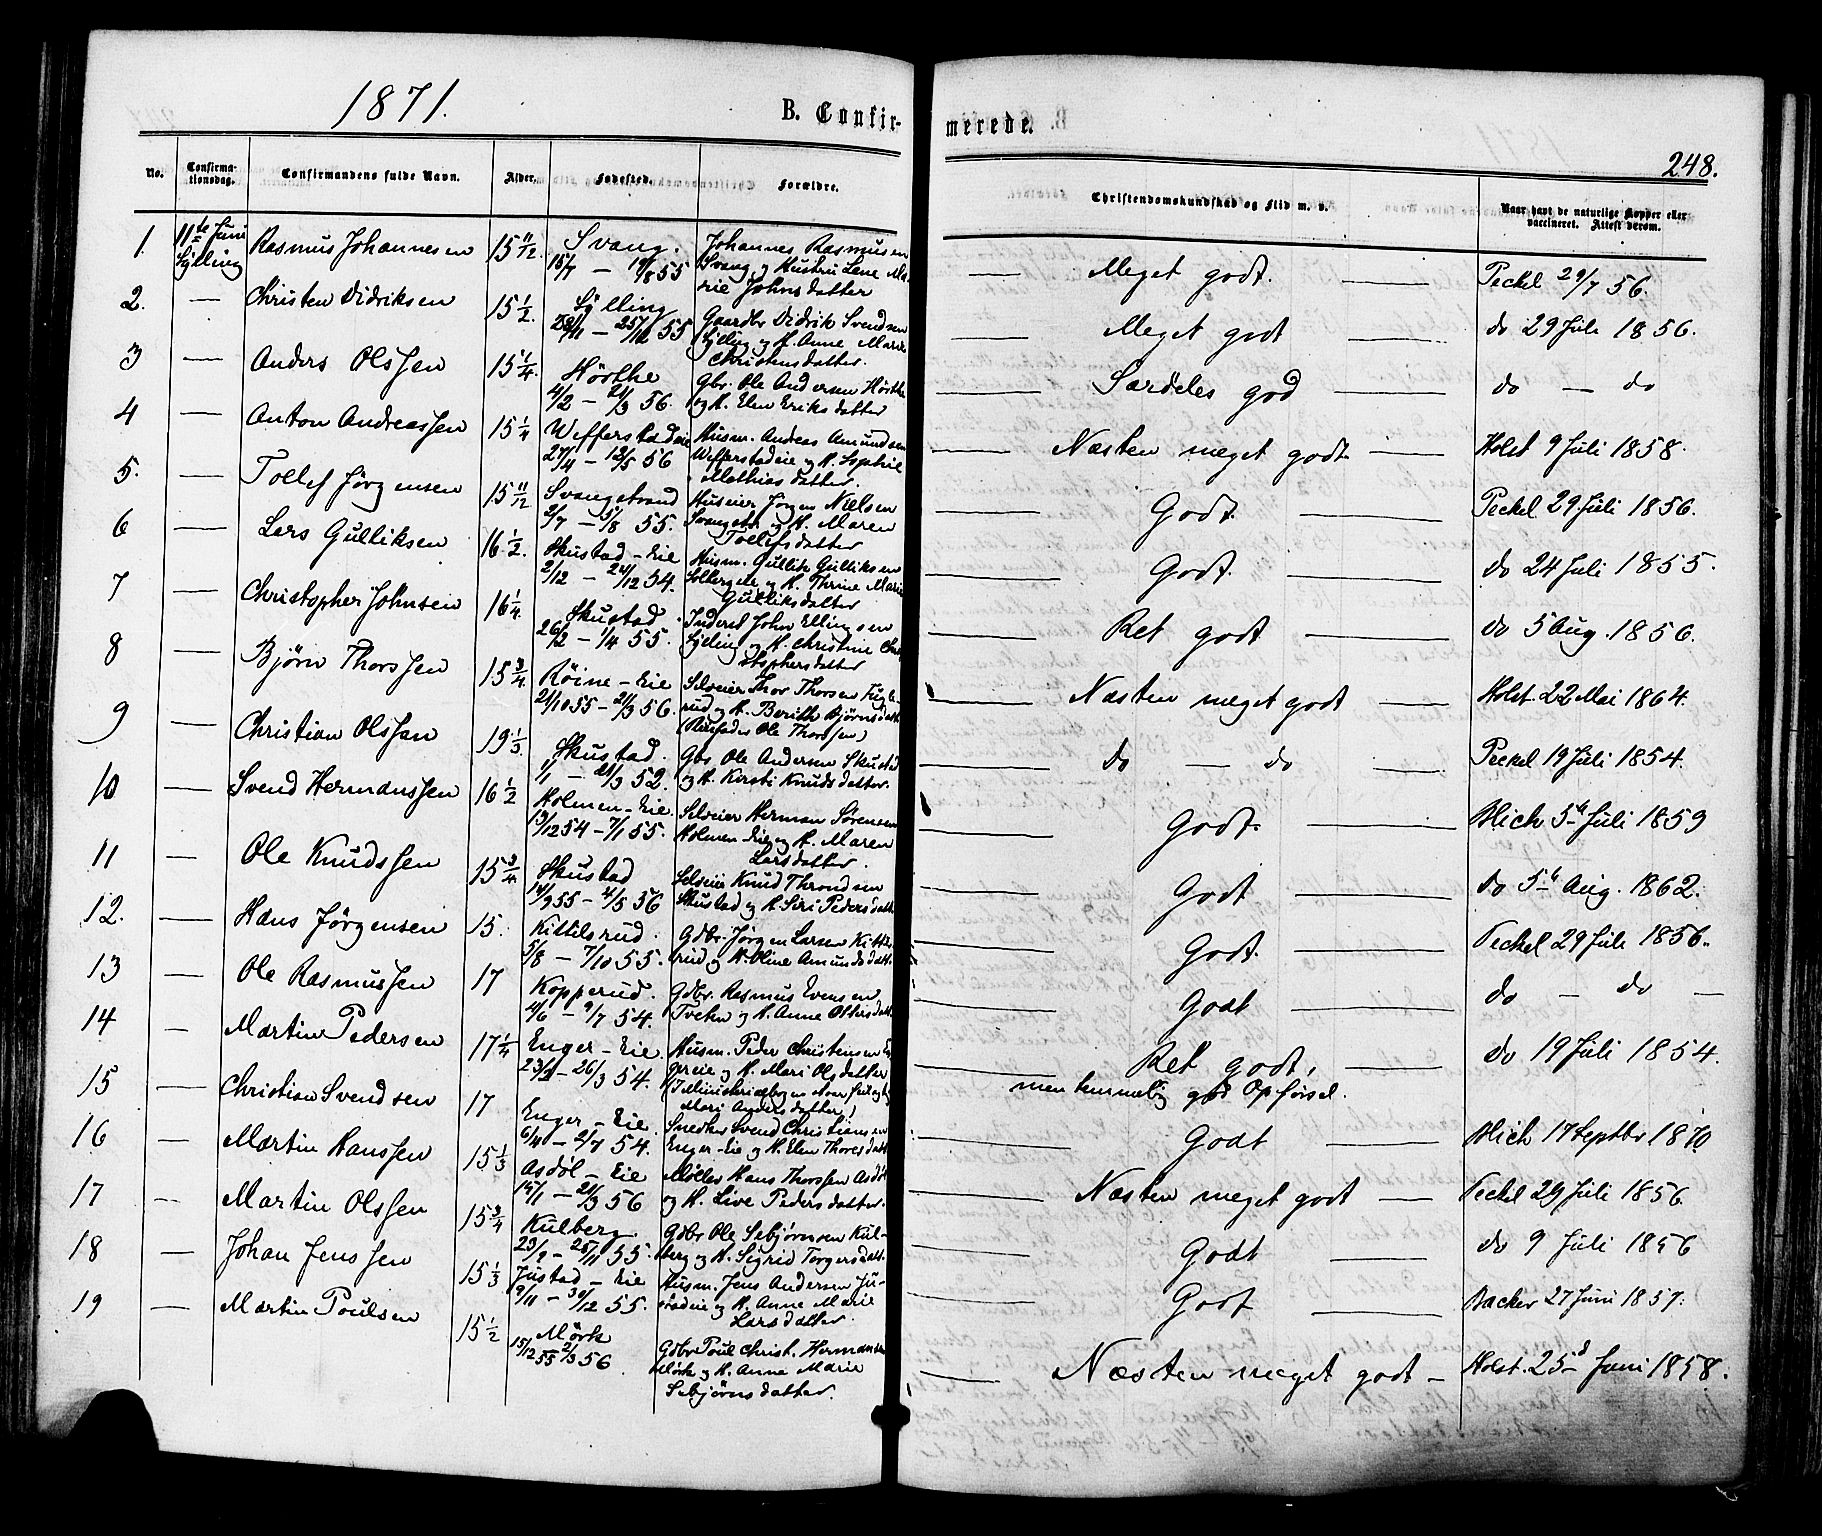 1871.
B. Confir-
merede.
248.
No.
Confirma-
tionsdag.
Confirmandens fulde Navn.
Alder.
Fødested.
Forældre.
Christendomskundskab og Flid m. v.
Naar havt de naturlige Kopper eller
vaccineret. Attest derom.
1. 11te Juni Rasmus Johannesen 15 11/12 Svang. Johannes Rasmusen
Sylling 15/7 — 19/8 55 Svang og Hustru Lene Ma-
rie Johnsdatter
— Meget godt. — Peckel 29/7 56.
2. — Christen Didriksen 15 1/2. Sylling Gaardbr Didrik Svendsen
— 25/12 55 Sylling og H. Anne Marie
Christensdatter.
— Meget godt — do 29 Juli 1856.
3 — Anders Olssen 15 1/4. Hörthe Gbr. Ole Andersen Hörthe
4/2 — 24/3 56. og H. Elen Eriksdatter
— Særdeles god — do — do
4 — Anton Andreassen 15 1/4 Wefferstadeie Husm. Andreas Amundsen
27/4 — 12/5 56 Wefferstadeie og H. Sophie
Mathiasdatter.
— Næsten meget godt — Holst 9 Juli 1858.
5. — Tollef Jörgensen 15 11/12 Svangstrand Huseier Jörgen Nielsen
2/7 — 5/8 55. Svangstr. og H. Maren
Tollefsdatter
— Godt. — Peckel 29 Juli 1856.
6 — Lars Gulliksen 16 1/2. Skustad-Eie Husm. Gullik Gulliksen
2/12 — 24/12 54. og H. Thrine Marie
Gulliksdatter
— Godt. — do 24 Juli 1855.
7 — Christopher Johnsen 16 1/4. Skustad. Inderst John Ellingsen
26/2 — 1/4 55. Sylling og H. Christine Chri-
stophersdatter
— Ret godt — do 5 Aug. 1856.
8 — Bjørn Thorssen 15 3/4. Röine-Eie Selveier Thor Thorsen Fugle-
21/10 55 — 21/3 56. rud og H. Berith Bjørnsdatt.
Ole Thorssen)
— Næsten meget godt — Holst 22 Mai 1864.
9 — Christian Olssen 19 1/3. Skustad. Gbr Ole Andersen Skustad
1/1 — 21/3 52. og H. Kersti Knudsdatter.
— do — do — Peckel 19 Juli 1854.
10 — Svend Hermanssen 16 1/2 Holmen-Eie. Selveier Herman Sörensen
13/12 54 — 7/1 55. Holmen Eie og H. Maren
Larsdatter.
— Godt. — Blich 5te Juli 1859
11 — Ole Knudssen 15 3/4 Skustad Selveier Knud Throndsen
14/9 55 — 4/5 56 Skustad og H. Siri Pedersdatt.
— Godt — do 5te Aug. 1862.
12. — Hans Jörgensen 15. Kittilsrud. Gdbr. Jörgen Larsen Kittils-
5/8 — 7/10 55. rud og H. Oline Amundsdatt.
— Godt. — Peckel 29 Juli 1856.
13 — Ole Rasmussen 17 Kopperud. Gdbr. Rasmus Evensen
4/6 — 9/7 54. Tveten og H. Anne Ottersdatt.
— Godt — do — do —
14 — Martin Pedersen 17 1/4 Enger-Eie. Husm. Peder Christensen En-
— 26/3 54. gereie og H. Mari Olsdatter
(I Ministerialbogen
Mari Andersdatter)
— Ret godt, — do 19 Juli 1854.
men temmelig god Opførsel.
15 — Christian Svendsen 17 Enger-Eie. Snedker Svend Christensen
6/4 — 2/7 54. Enger-Eie og H. Elen Thoresdatt.
— Godt — Blich 17 Septbr 1870
16 — Martin Hanssen 15 1/3 Asdøl-Eie Møller Hans Thorssen Asdøl
14/1 — 21/3 56 og H. Live Pedersdatter.
— Næsten meget godt — Peckel 29 Juli 1856
17 — Martin Olssen 15 3/4 Kulberg Gdbr Ole Sebjørnsen Kul-
23/9 — 25/11 55. berg og H. Sigrid Torgersdatt.
— Godt — do 9 Juli 1856
18 — Johan Jenssen 15 1/3 Justad-Eie Husm. Jens Andersen Ju-
9/11 — 30/12 55. stadeie og H. Anne Marie
Larsdatter.
— Godt — Backer 27 Juni 1857.
19 — Martin Poulsen 15 1/2 Mörk Gdbr Poul Christ. Hermansen
15/12 55 — 2/3 56 Mörk og H. Anne Marie
Sebjørnsdatter.
— Næsten meget godt — Holst. 25d Juni 1858.